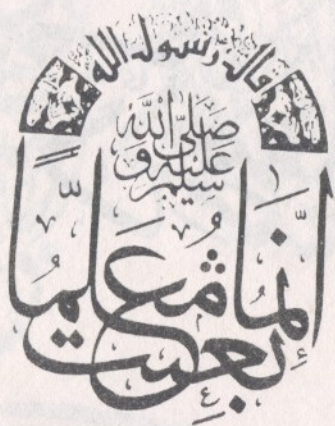 قال رسول الله
صلى الله
عليه و
سلم
إنما بعثت معلماً